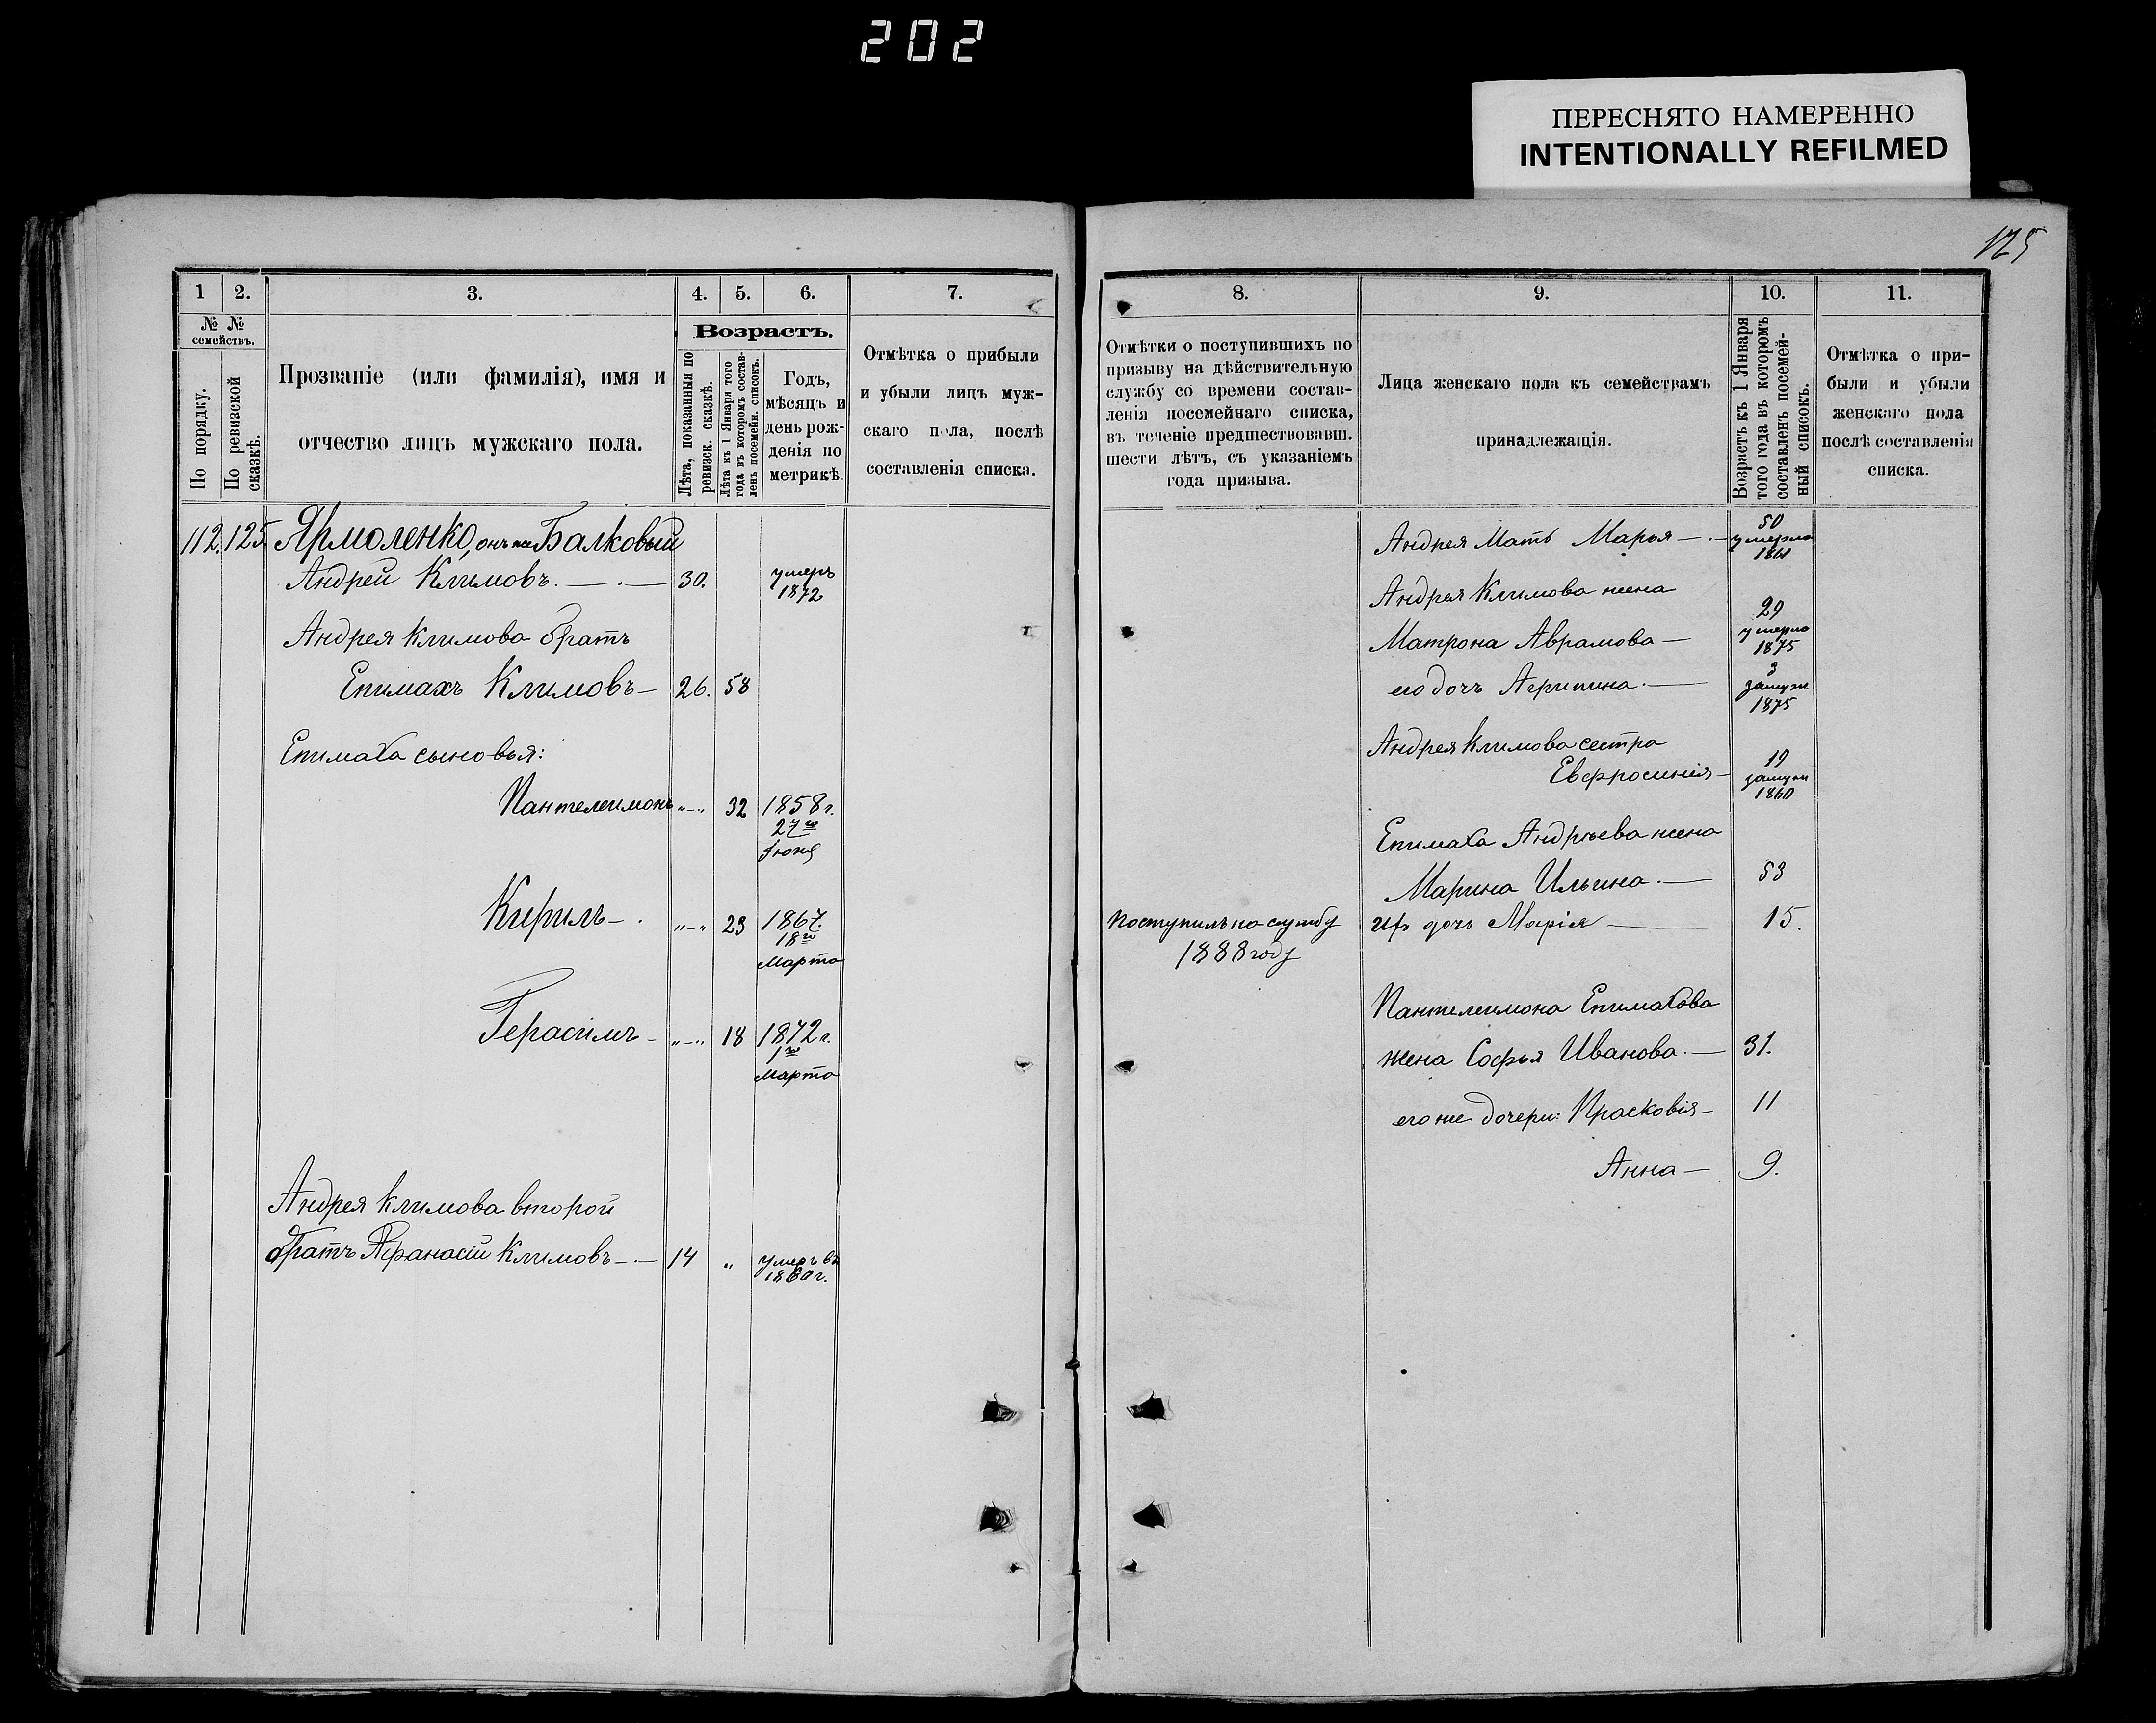 202
ПЕРЕСНЯТО НАМЕРЕННО
INTENTIONALLY REFILMED
125
1 2. 3. 4. 5. 6. 7.
№ № семействъ.
По порядку.
По ревизской сказкѣ.
Прозваніе (или фамилія), имя и
отчество лицъ мужскаго пола.
Возрастъ.
Лѣта, показанныя по ревизск. сказкѣ.
Лѣта къ 1 Января того года въ которомъ составленъ посемейн. списокъ.
Годъ,
мѣсяцъ и
день рож-
денія по
метрикѣ.
Отмѣтка о прибыли
и убыли лицъ муж-
скаго пола, послѣ
составленія списка.
112. 125. Ярмоленко, онъ же Балковый
Андрей Климовъ. — . — 30. умеръ
1872
Андрея Климова братъ
Епимахъ Климовъ — 26. 58
Епимаха сыновья:
Пантелеимонъ „ — „ 32 1858 г.
27го
Іюня
Кирилъ — . „ — „ 23 1867.
18го
Марта
Герасимъ — „ — „ 18 1872 г.
1го
Марта
Андрея Климова второй
братъ Афанасій Климовъ — . — 14 „ умеръ въ
1860 г.
8. 9. 10. 11.
Отмѣтки о поступившихъ по
призыву на дѣйствительную
службу со времени состав-
ленія посемейнаго списка,
въ теченіе предшествовавш.
шести лѣтъ, съ указаніемъ
года призыва.
Лица женскаго пола къ семействамъ
принадлежащія.
Возрастъ къ 1 Января
того года въ которомъ
составленъ посемей-
ный списокъ.
Отмѣтка о при-
были и убыли
женскаго пола
послѣ составленія
списка.
Андрея Мать Марья — . — 50
умерла
1861
Андрея Климова жена
Матрона Аврамова — 29
умерла
1875
его дочь Агрипина. — 3
замуж.
1875
Андрея Климова сестра
Евфросинія — 19
замуж
1860
Епимаха Андрѣева жена
Марина Ильина. — 53
Поступилъ на службу
1888 году
ихъ дочь Марія — 15.
Пантелеимона Епимахова
жена Софья Иванова. — 31.
его же дочери: Прасковія — 11
Анна — 9.